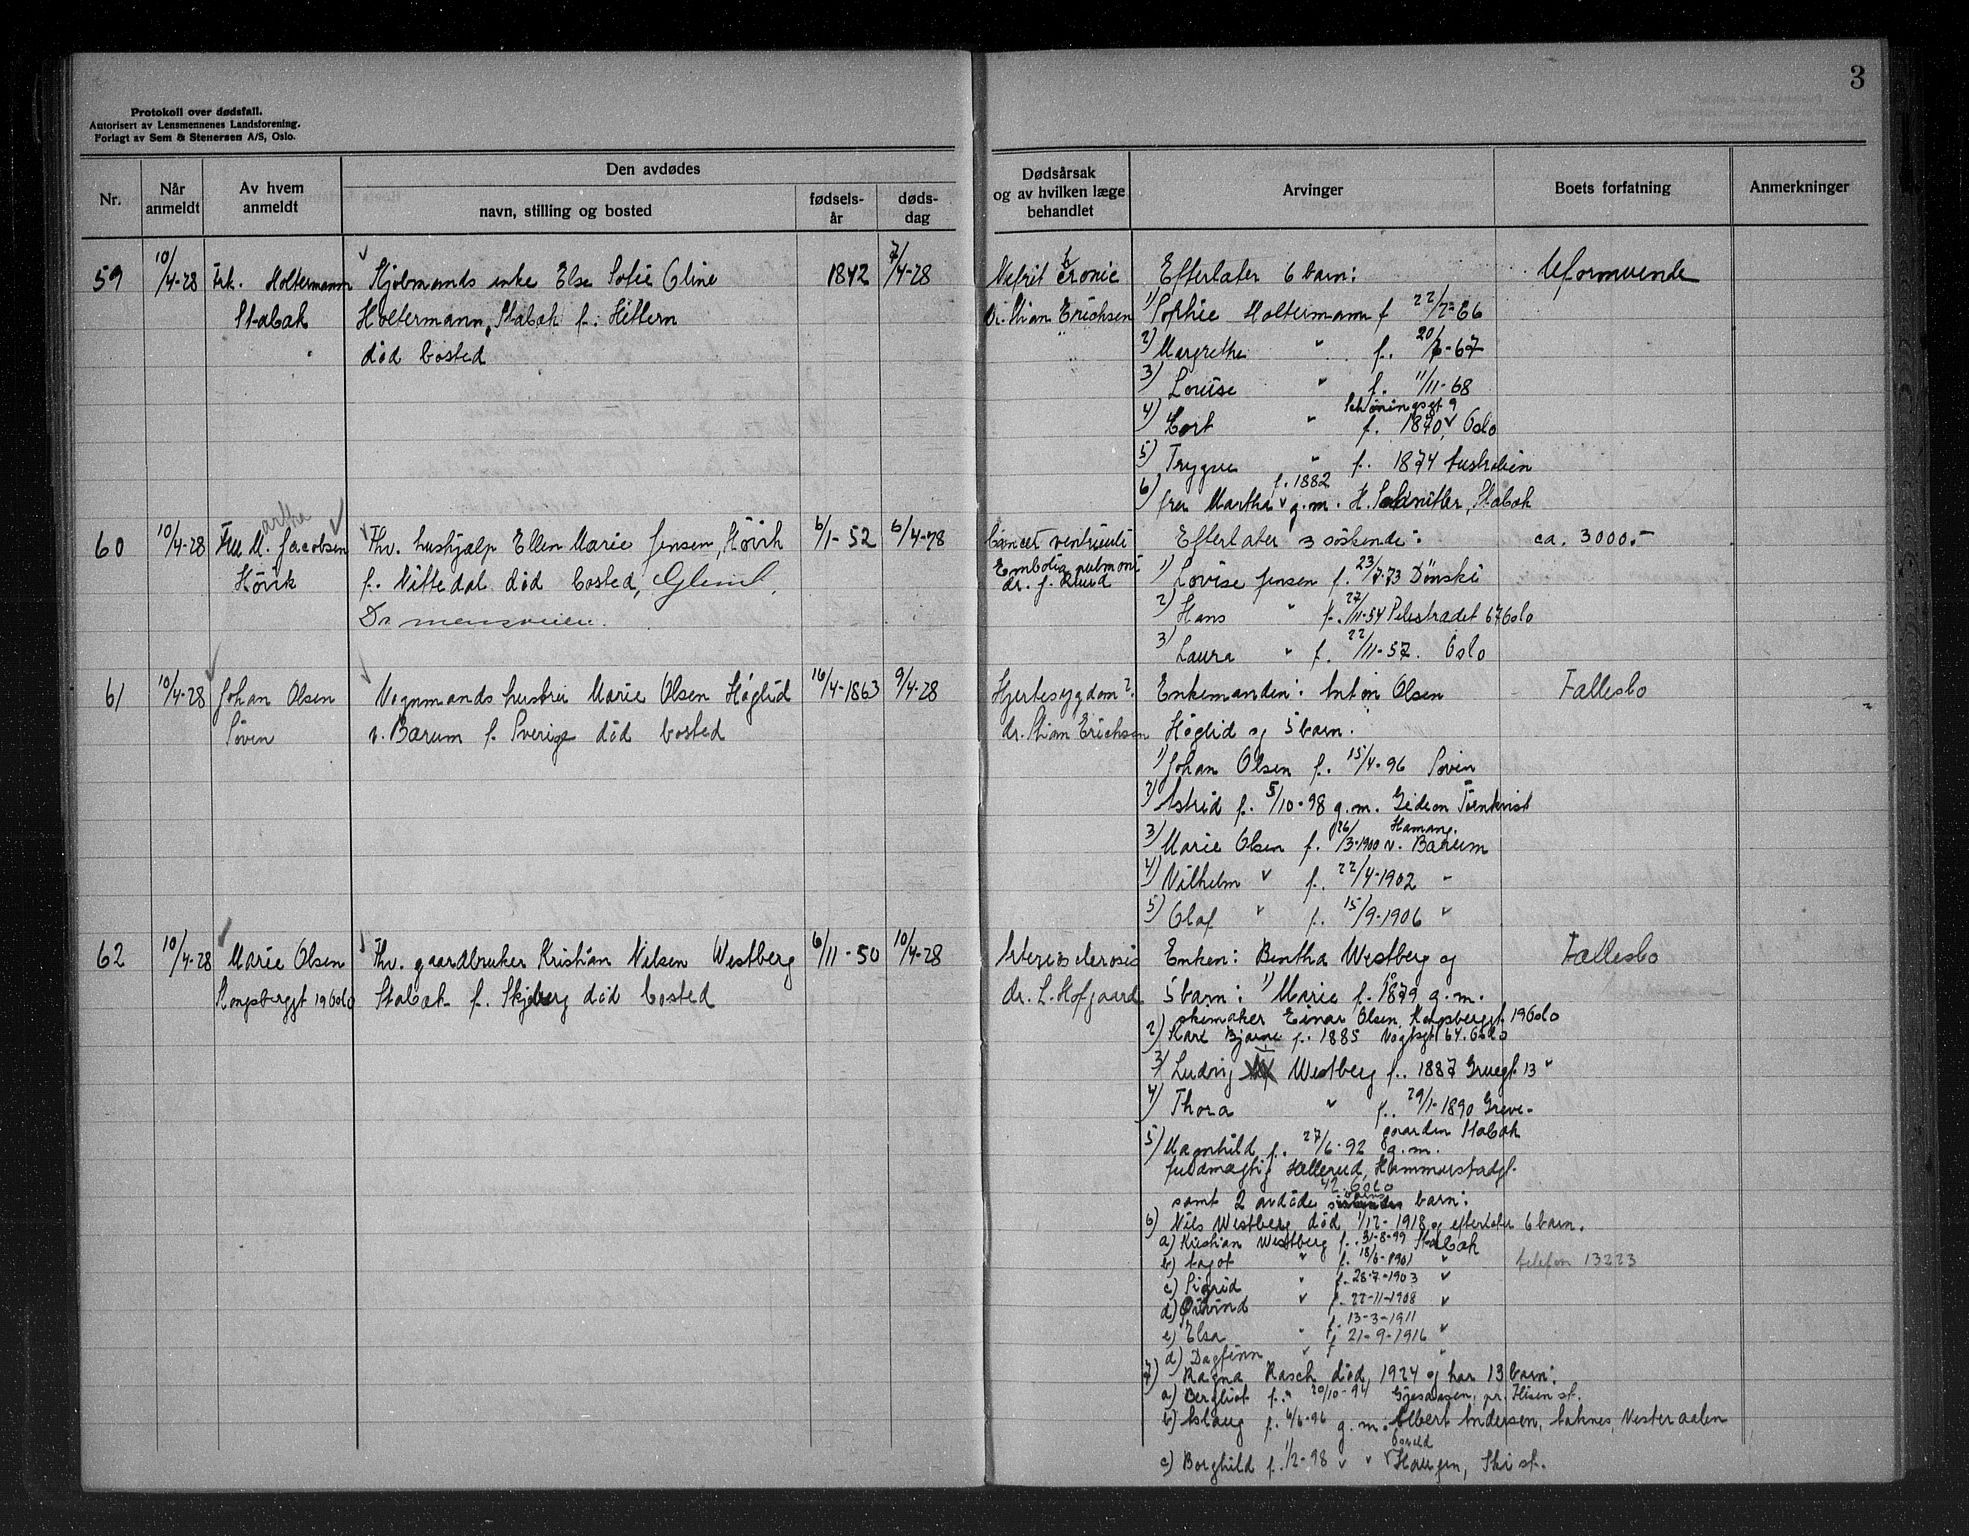 3
Protokoll over dødsfall.
Autorisert av Lensmennenes Landsforening.
Forlagt av Sem & Stenersen A/S, Oslo.
Nr.
Når anmeldt
Av hvem anmeldt
Den avdødes
navn, stilling og bosted
fødsels-år
døds-dag
Dødsårsak og av hvilken læge behandlet
Arvinger
Boets forfatning
Anmerkninger
59 10/4-28 Frk. Holtermann Stabæk
Kjøbmands enke Else Sofie Oline
Holtermann, Stabæk f. Hittern
død bosted
1842 7/4-28
Nefrit cronic
Dr. Stian Erichsen
Efterlater 6 barn:
1) Sophie Holtermann f 22/2-66
2) Margrethe " f. 20/6-67
3) Louise " f. 11/11-68
Schøningsgt 9
4) Cort " f. 1870, Oslo
5) Trygve " f. 1874 Australien
f. 1882
6) fru Martha g.m. H. Schnitler, Stabæk
Uformuende
60 10/4-28 Fru M. Jacobsen
artha
Høvik
Fhv. hushjælp Ellen Marie Jensen, Høvik
f. Nittedal død bosted,
6/1-52 6/4-28
Cancer ventriculi
Emboli pulmoni
dr. J. Ruud
Efterlater 3 søskende:
1) Lovise Jensen f. 23/7.73 Dønski
2) Hans " f. 27/11-54 Pilestrædet 67 Oslo
3) Laura " f. 22/11-57. Oslo
ca. 3000.-
61 10/4-28 Johan Olsen
Vognmands hustru Marie Olsen Høglid
v. Bærum f. Sverige død bosted
16/4-1863 9/4-28
Hjertesygdom?
dr. Stian Erichsen
Enkemanden: Anton Olsen
Høglid og 5 barn.
1) Johan Olsen f. 15/4-96
2) Astrid f. 5/10-98 g.m. Gideon Törnkvist
Hamang.
3) Marie Olsen f. 26/3-1900 v. Bærum
4) Vilhelm " f. 22/4-1902 "
5) Olaf " f. 15/9-1906 "
Fællesbo
62 10/4-28 Marie Olsen
Kongsberggt 19 Oslo
Fhv. gaardbruker Kristian Nilsen Westberg
Stabæk f. Skjeberg død bosted
6/11-50 10/4-28
Arteriosclerosis
dr. L. Hofgaard
Enken: Bentha Westberg og
5 barn: 1) Marie f. 1879 g.m.
skomaker Einar Olsen, Kongsberggt. 19 Oslo
2) Karl Bjarne f. 1885 Vogtsgt 64. Oslo
3) Ludvig Westberg f. 1887 Gruegt. 13 "
4) Thora " f. 29/1-1890 Greve-
gaarden Stabæk
5) Magnhild f. 27/6-92 g.m.
fuldmægtig Hellerud, Hammerstadgt.
42. Oslo
samt 2 avdøde barn:
6) Nils Westberg død 1/12-1918 og efterlater 6 barn.
a) Kristian Westberg f. 31-8-99 Stabæk
b) Aagot " f. 18/6-1901 "
c) Sigrid " f. 28-7-1903 "
d) Øivind " f. 22-11-1908 "
f. 13-3-1911
e) Elsa " f 21-9-1916 "
d) Dagfinn " f "
7) Ragna Rasch død 1924 og har 13 barn:
a) Bergliot f. 20/10-94
b) Aslaug f. 6/6-96 g.m. Albert Andersen, Vesteraalen
c) Borghild f. 1/2-98 " " Haugen, Ski st.
Fællesbo
telefon 13223